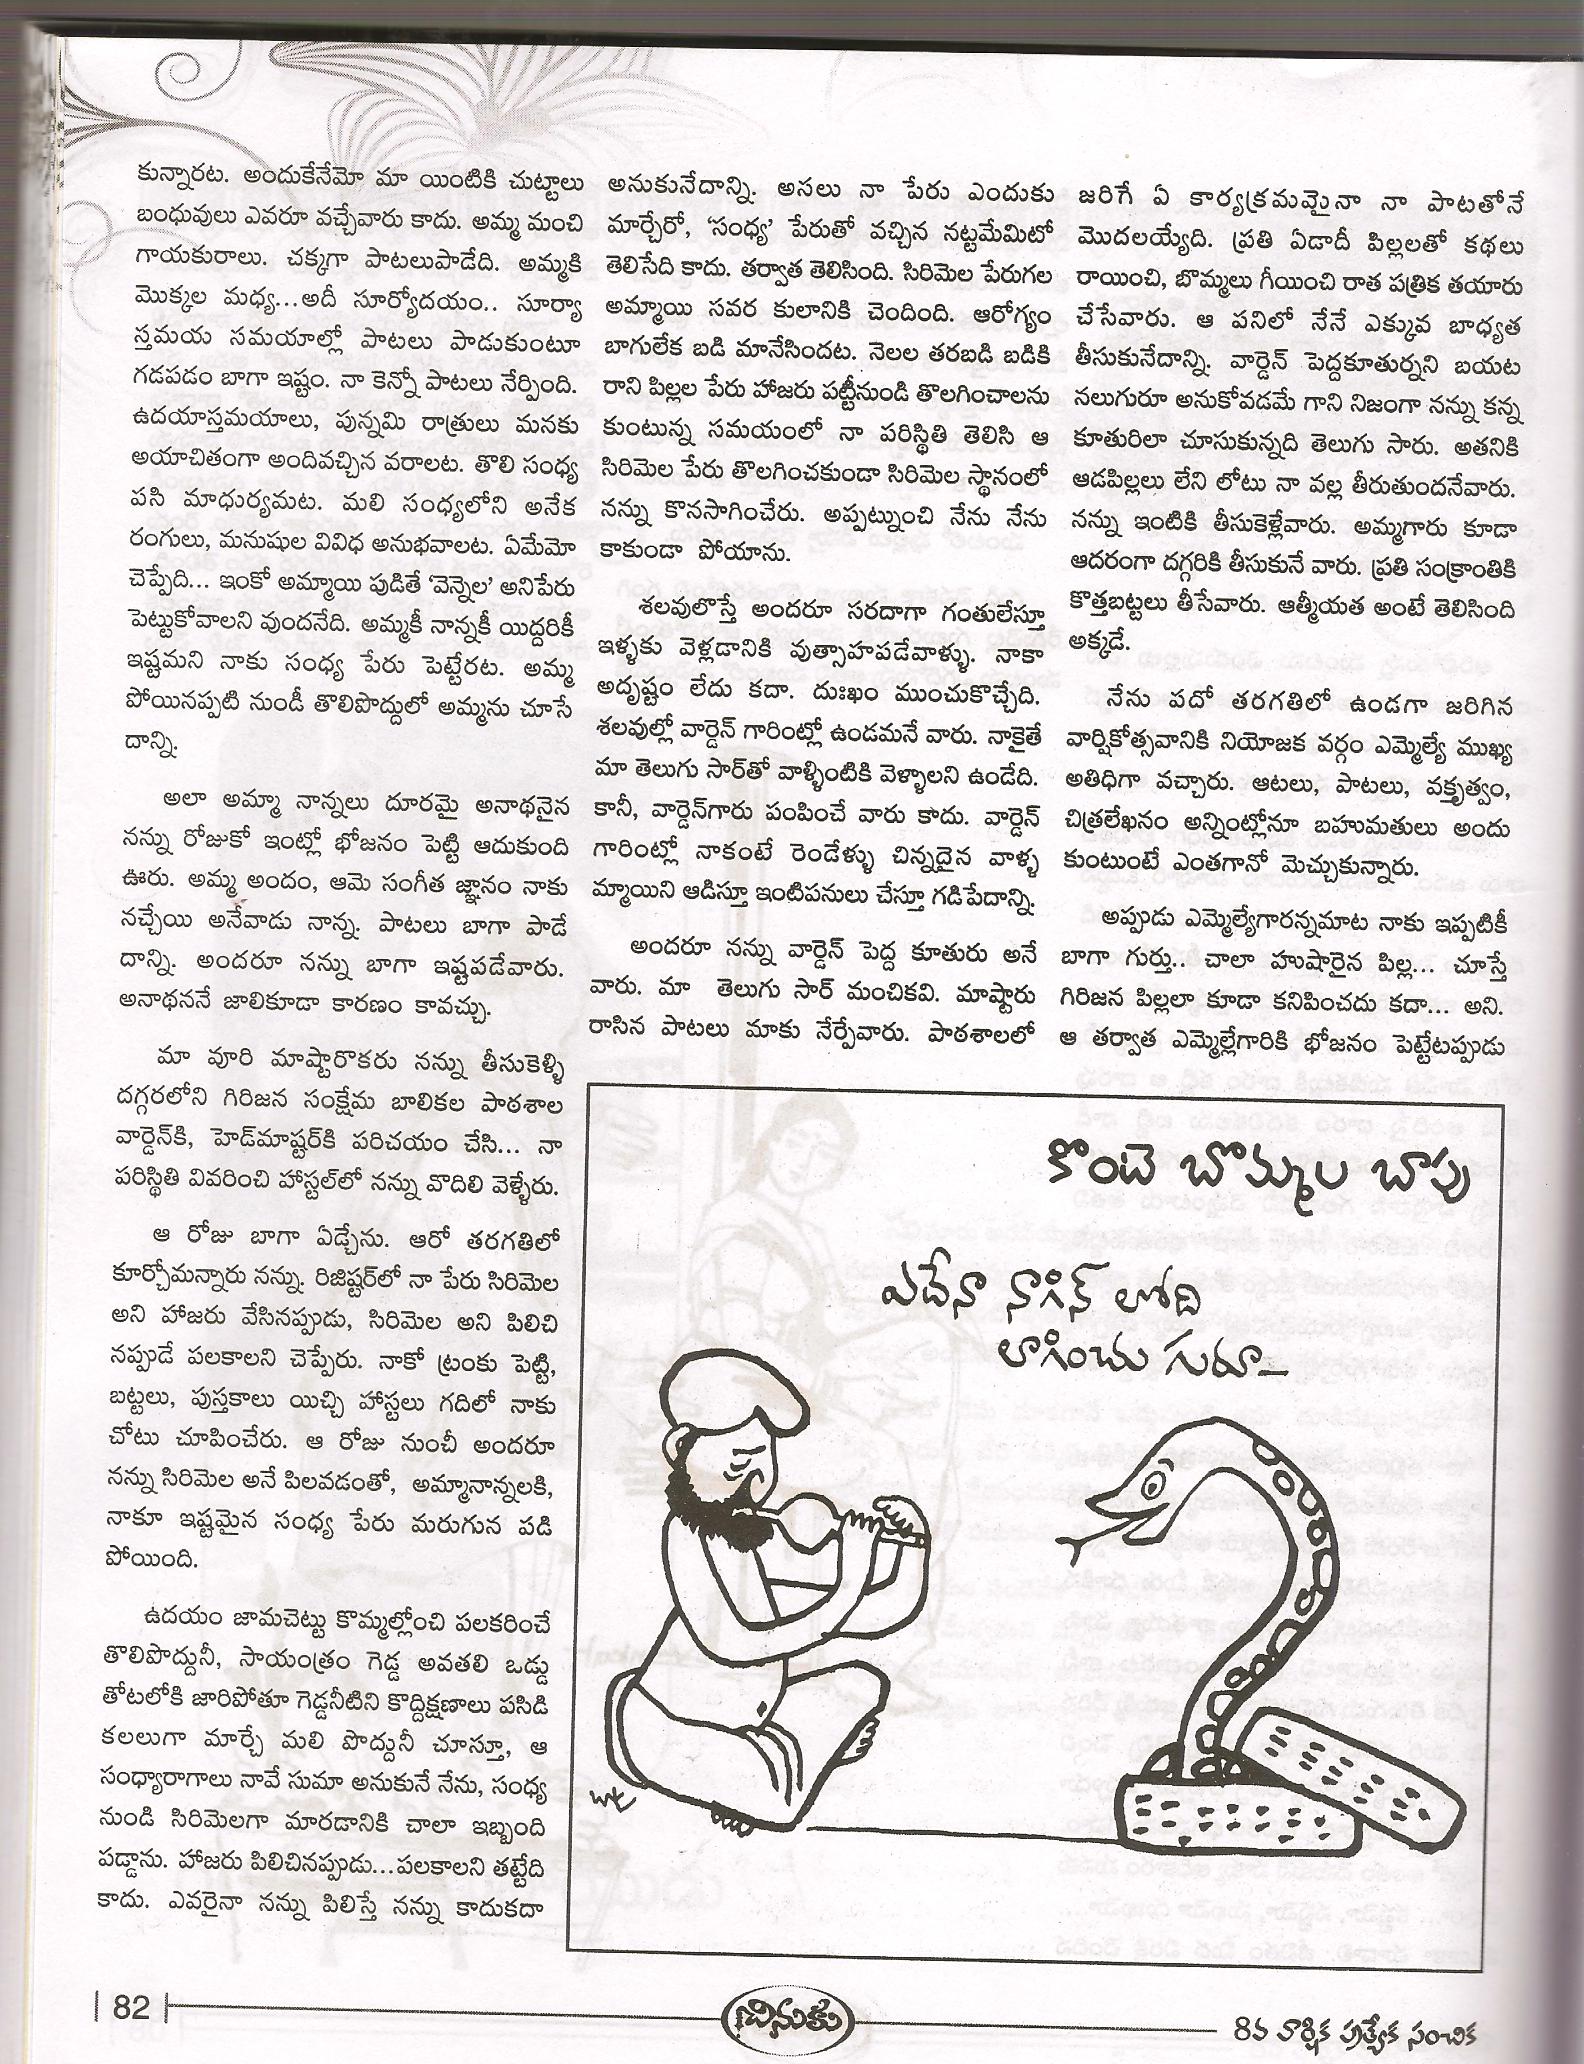 కున్నారట. అందుకేనేమో మా యింటికి చుట్టాలు
బంధువులు ఎవరూ వచ్చేవారు కాదు. అమ్మ మంచి
గాయకురాలు. చక్కగా పాటలుపాడేది. అమ్మకి
మొక్కల మధ్య...అదీ సూర్యోదయం.. సూర్యా
స్తమయ సమయాల్లో పాటలు పాడుకుంటూ
గడపడం బాగా ఇష్టం. నా కెన్నో పాటలు నేర్పింది.
ఉదయాస్తమయాలు, పున్నమి రాత్రులు మనకు
అయాచితంగా అందివచ్చిన వరాలట. తొలి సంధ్య
పసి మాధుర్యమట. మలి సంధ్యలోని అనేక
రంగులు, మనుషుల వివిధ అనుభవాలట. ఏమేమో
చెప్పేది... ఇంకో అమ్మాయి పుడితే ‘వెన్నెల’ అనిపేరు
పెట్టుకోవాలని వుందనేది. అమ్మకీ నాన్నకీ యిద్దరికీ
ఇష్టమని నాకు సంధ్య పేరు పెట్టేరట. అమ్మ
పోయినప్పటి నుండీ తొలిపొద్దులో అమ్మను చూసే
దాన్ని.
అలా అమ్మా నాన్నలు దూరమై అనాథనైన
నన్ను రోజుకో ఇంట్లో భోజనం పెట్టి ఆదుకుంది
ఊరు. అమ్మ అందం, ఆమె సంగీత జ్ఞానం నాకు
నచ్చేయి అనేవాడు నాన్న. పాటలు బాగా పాడే
దాన్ని. అందరూ నన్ను బాగా ఇష్టపడేవారు.
అనాథననే జాలికూడా కారణం కావచ్చు.
మా వూరి మాష్టారొకరు నన్ను తీసుకెళ్ళి
దగ్గరలోని గిరిజన సంక్షేమ బాలికల పాఠశాల
వార్డెన్‌కి, హెడ్‌మాష్టర్‌కి పరిచయం చేసి... నా
పరిస్థితి వివరించి హాస్టల్‌లో నన్ను వొదిలి వెళ్ళేరు.
ఆ రోజు బాగా ఏడ్చేను. ఆరో తరగతిలో
కూర్చోమన్నారు నన్ను. రిజిష్టర్‌లో నా పేరు సిరిమెల
అని హాజరు వేసినప్పుడు, సిరిమెల అని పిలిచి
నప్పుడే పలకాలని చెప్పేరు. నాకో ట్రంకు పెట్టి,
బట్టలు, పుస్తకాలు యిచ్చి హాస్టలు గదిలో నాకు
చోటు చూపించేరు. ఆ రోజు నుంచీ అందరూ
నన్ను సిరిమెల అనే పిలవడంతో, అమ్మానాన్నలకి,
నాకూ ఇష్టమైన సంధ్య పేరు మరుగున పడి
పోయింది.
ఉదయం జామచెట్టు కొమ్మల్లోంచి పలకరించే
తొలిపొద్దునీ, సాయంత్రం గెడ్డ అవతలి ఒడ్డు
తోటలోకి జారిపోతూ గెడ్డనీటిని కొద్దిక్షణాలు పసిడి
కలలుగా మార్చే మలి పొద్దునీ చూస్తూ, ఆ
సంధ్యారాగాలు నావే సుమా అనుకునే నేను, సంధ్య
నుండి సిరిమెలగా మారడానికి చాలా ఇబ్బంది
పడ్డాను. హాజరు పిలిచినప్పుడు...పలకాలని తట్టేది
కాదు. ఎవరైనా నన్ను పిలిస్తే నన్ను కాదుకదా
అనుకునేదాన్ని. అసలు నా పేరు ఎందుకు
మార్చేరో, ‘సంధ్య’ పేరుతో వచ్చిన నట్టమేమిటో
తెలిసేది కాదు. తర్వాత తెలిసింది. సిరిమెల పేరుగల
అమ్మాయి సవర కులానికి చెందింది. ఆరోగ్యం
బాగులేక బడి మానేసిందట. నెలల తరబడి బడికి
రాని పిల్లల పేరు హాజరు పట్టీనుండి తొలగించాలను
కుంటున్న సమయంలో నా పరిస్థితి తెలిసి ఆ
సిరిమెల పేరు తొలగించకుండా సిరిమెల స్థానంలో
నన్ను కొనసాగించేరు. అప్పట్నుంచి నేను నేను
కాకుండా పోయాను.
శలవులొస్తే అందరూ సరదాగా గంతులేస్తూ
ఇళ్ళకు వెళ్లడానికి వుత్సాహపడేవాళ్ళు. నాకా
అదృష్టం లేదు కదా. దుఃఖం ముంచుకొచ్చేది.
శలవుల్లో వార్డెన్ గారింట్లో ఉండమనే వారు. నాకైతే
మా తెలుగు సార్‌తో వాళ్ళింటికి వెళ్ళాలని ఉండేది.
కానీ, వార్డెన్‌గారు పంపించే వారు కాదు. వార్డెన్
గారింట్లో నాకంటే రెండేళ్ళు చిన్నదైన వాళ్ళ
మ్మాయిని ఆడిస్తూ ఇంటిపనులు చేస్తూ గడిపేదాన్ని.
అందరూ నన్ను వార్డెన్ పెద్ద కూతురు అనే
వారు. మా తెలుగు సార్ మంచికవి. మాష్టారు
రాసిన పాటలు మాకు నేర్పేవారు. పాఠశాలలో
జరిగే ఏ కార్యక్రమమైనా నా పాటతోనే
మొదలయ్యేది. ప్రతి ఏడాదీ పిల్లలతో కథలు
రాయించి, బొమ్మలు గీయించి రాత పత్రిక తయారు
చేసేవారు. ఆ పనిలో నేనే ఎక్కువ బాధ్యత
తీసుకునేదాన్ని. వార్డెన్ పెద్దకూతుర్నని బయట
నలుగురూ అనుకోవడమే గాని నిజంగా నన్ను కన్న
కూతురిలా చూసుకున్నది తెలుగు సారు. అతనికి
ఆడపిల్లలు లేని లోటు నా వల్ల తీరుతుందనేవారు.
నన్ను ఇంటికి తీసుకెళ్లేవారు. అమ్మగారు కూడా
ఆదరంగా దగ్గరికి తీసుకునే వారు. ప్రతి సంక్రాంతికి
కొత్తబట్టలు తీసేవారు. ఆత్మీయత అంటే తెలిసింది
అక్కడే.
నేను పదో తరగతిలో ఉండగా జరిగిన
వార్షికోత్సవానికి నియోజక వర్గం ఎమ్మెల్యే ముఖ్య
అతిధిగా వచ్చారు. ఆటలు, పాటలు, వక్తృత్వం,
చిత్రలేఖనం అన్నింట్లోనూ బహుమతులు అందు
కుంటుంటే ఎంతగానో మెచ్చుకున్నారు.
అప్పుడు ఎమ్మెల్యేగారన్నమాట నాకు ఇప్పటికీ
బాగా గుర్తు.. చాలా హుషారైన పిల్ల... చూస్తే
గిరిజన పిల్లలా కూడా కనిపించదు కదా... అని.
ఆ తర్వాత ఎమ్మెల్లేగారికి భోజనం పెట్టేటప్పుడు
కొంటె బొమ్మల బాపు
ఎదేనా నాగిన్ లోది
లాగించు గురూ–
82
చినుకు
8వ వార్షిక ప్రత్యేక సంచిక